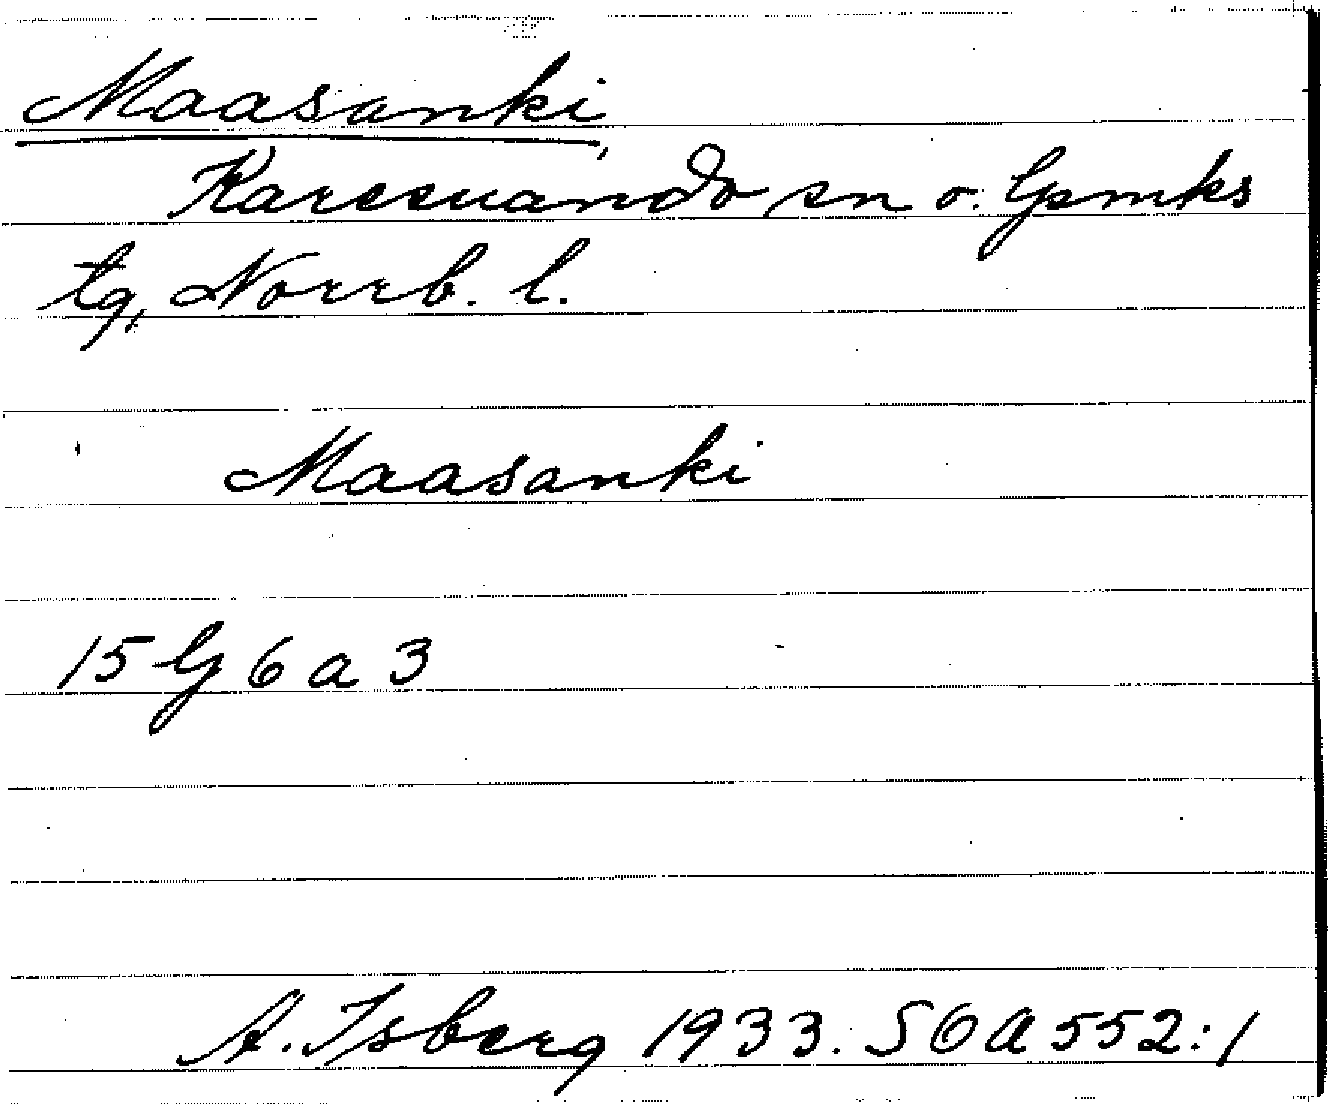 Maasanki,
Karesuando sn o. Gsmks
tg, Norrb. l.
Maasanki
15 G 6 a 3
A. Isberg 1933. SOA 552:1